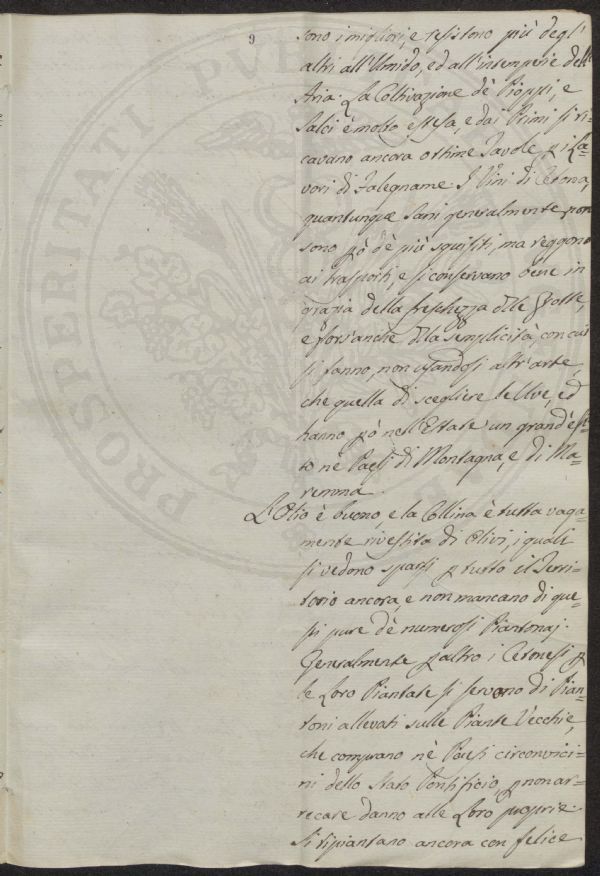 9
sono i migliori, e resistono più degl'
altri all'Umido, ed all'intemperie dell'
Aria. La Coltivazione de' Pioppi, e
Salci è molto estesa, e dai Primi si ri=
cavano ancora ottime Tavole p i La=
vori di Falegname. I Vini di Cetona,
quantunque Sani generalmente non
sono pò de' più squisiti, ma reggono
ai trasporti, e si conservano bene in
grazia della freschezza delle Grotte,
e fors'anche della semplicità, con cui
si fanno, non usandosi altr'arte,
che quella di scegliere le Uve, ed
hanno pò nell'Estate un grand'esi=
to ne' Paesi di Montagna, e di Ma=
remma.
L'Olio è buono, e la Collina è tutta vaga=
mente rivestita di Olivi, i quali
si vedono sparsi p tutto il Terri=
torio ancora, e non mancano di que=
sti pure de' numerosi Piantonaj.
Generalmente p altro i Cetonesi p
le Loro Piantate si servono di Pian=
toni allevati sulle Piante Vecchie,
che comprano ne' Paesi circonvici=
ni dello Stato Pontificio, p non ar=
recare danno alle Loro proprie.
Si ripiantano ancora con felice
PROSPERITATI